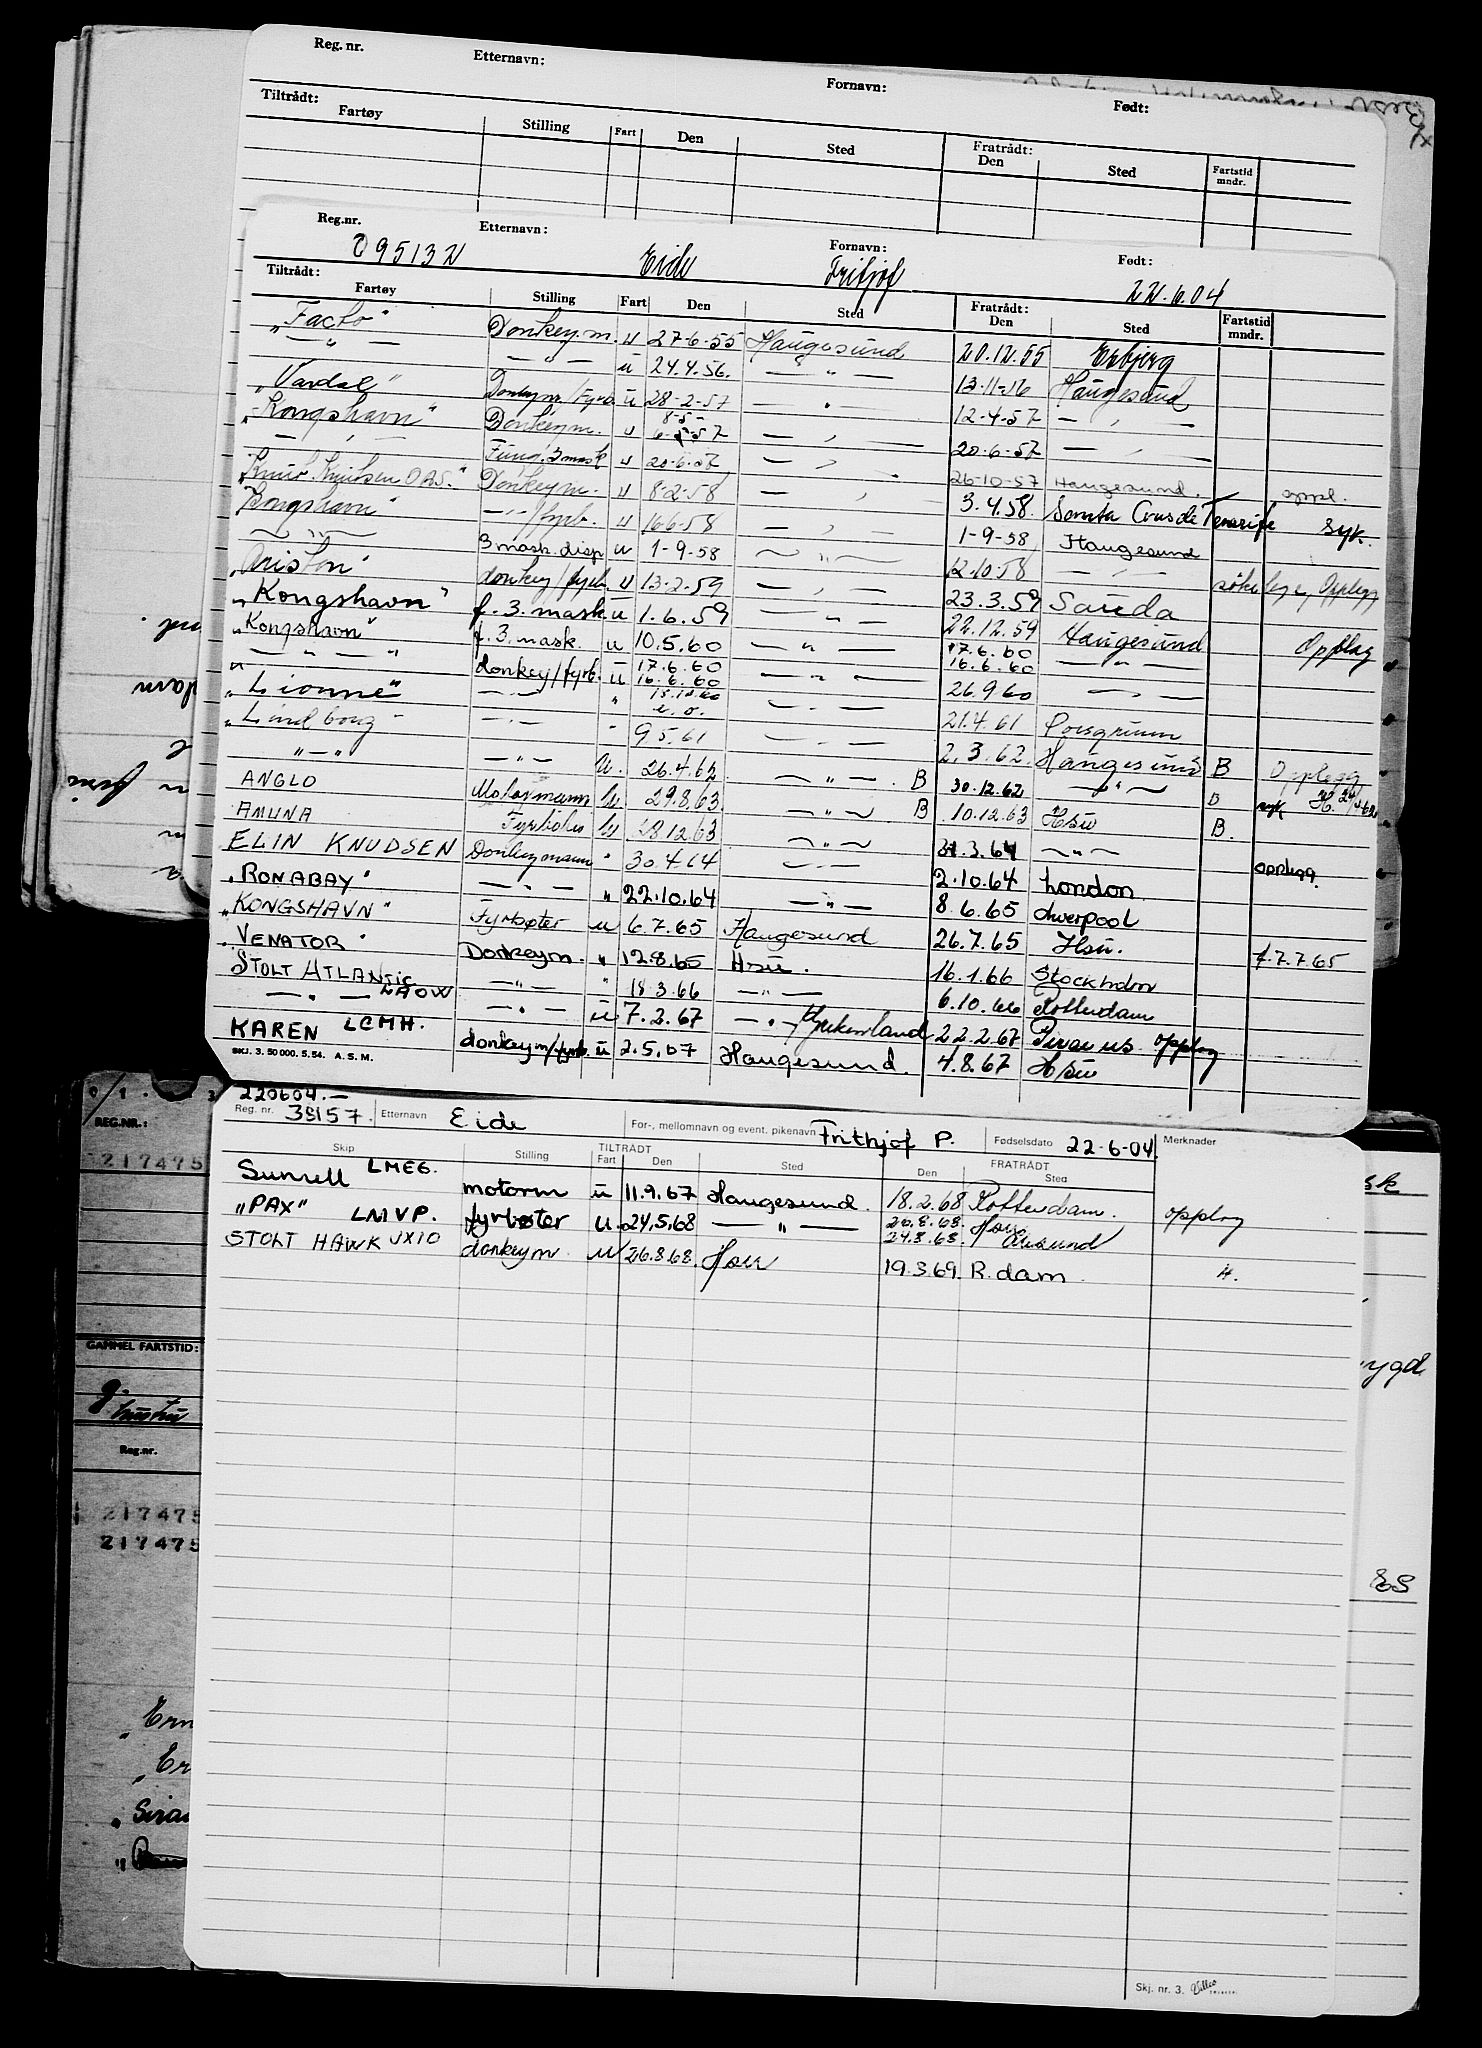 Reg. nr. Etternavn: Fornavn: Født:
Tiltrådt: Fratrådt:
Fartøy Stilling Fart Den Sted Den Sted Fartstid mndr.
Reg.nr. Etternavn: Fornavn: Født:
095132 Eide Fritjof 22.6.04
Tiltrådt: Fratrådt:
Fartøy Stilling Fart Den Sted Den Sted Fartstid mndr.
"Facto" Donkeym. u 27-6-55 Haugesund 20.12.55 Esbjerg
— " — — — u 24.4.56. — " — 13-11-56 Haugesund
"Vardal" Donkeym/fyrb. u 28-2-57 — " — 12-4-57 — , —
8-5-
"Kongshavn" Donkeym. u 6-5-57 — , — 20-6-57 — , —
— , — Fung. 3 mask u 20-6-57 — , — 26-10-57 Haugesund. oppl.
Knut Knutsen OAS." Donkeym. u 8-2-58 — , — 3.4.58. Santa Crus de Teneriffe syk.
Kongshavn" — " — /fyrb. u 16-6-58 — , — 1-9-58 Haugesund
— " — 3 mask. disp u 1-9-58 — " — 12-10-58 — , — Opplegg
"Ariston" donkey/fyrb. u 13-2-59 — , — 23.3.59 Sauda
"Kongshavn" f. 3. mask u 1.6.59 — " — 22.12.59 Haugesund Opplag
"Kongshavn" f. 3. mask. u 10.5.60 — " — 17.6.60 16.6.60 — " —
— " — " — " donkey/fyrb. u 17.6.60 16.6.60 — " — 26.9.60 — , —
"Lionne" — " — " 18.10.60 — . — 21.4.61 Porsgrunn
"Lindborg" — . — " 9.5.61 — . — 2.3.62. Haugesund B Opplegg
" — " — " — u. 26.4.62 — " — B 30.12.62 — " — B syk H. 24/4-62
ANGLO Motormann u 29.8.63 — " — B 10.12.63 Hsu B.
AMUNA Fyrbøter u 28.12.63 — " — 21.3.64 — " — opplegg.
ELIN KNUDSEN Donkeymann " 30.4.64 — . — 2.10.64 London
"RONABAY" — " — " 22.10.64 — " — 8.6.65 Liverpool
"KONGSHAVN" Fyrbøter u 6.7.65 Haugesund 26.7.65 Hsu. 7.7.65
"VENATOR" Donkeym. " 12.8.65 Hsu. 16.1.66 Stockholm
STOLT ATLANTIC — " — 18.3.66 — " — 6.10.66 Rotterdam
— " — LAOW — " — u. 7.2.67 — " — 22.2.67 Pireaus opplag
KAREN LCMH. donkeym/fyrb. u 2.5.67 Haugesund. 4.8.67 Hsu
SKJ. 3. 50 000. 5. 54. A. S. M.
220604.—
Reg. nr. 38157. Etternavn Eide For-, mellomnavn og event. pikenavn Frithjof P. Fødselsdato 22-6-04. Merknader
TILTRÅDT FRATRÅDT
Skip Stilling Fart Den Sted Den Sted
Sunrell LMEG. motorm u 11.9.67 Haugesund. 18.2.68 Rotterdam. opplag
"PAX" LMVP. fyrbøter u. 24.5.68 — " — 26.8.68. Hsu
24.8.68. Ålesund
STOLT HAWK JXIO donkeym u 26.8.68. Hsu 19.3.69. R.dam. H.
Skj. nr. 3.
REG.NR.:
217475
GAMMEL FARTSTID:
Reg.nr.
217475
217475